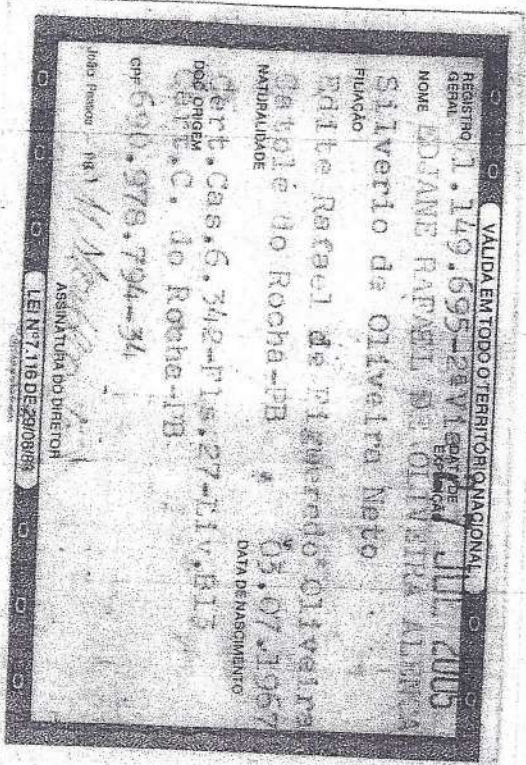 VÁLIDA EM TODO O TERRITÓRIO NACIONAL
REGISTRO GERAL 1.149.695-2ªVia DATA DE EXPEDIÇÃO JUL 2005
NOME EDJANE RAFAEL DE OLIVEIRA
FILIAÇÃO
Silverio de Oliveira Neto
Edite Rafael de Figueredo Oliveira
NATURALIDADE DATA DE NASCIMENTO
Catolé do Rocha-PB 03.07.1967
DOC ORIGEM
Cert.Cas.6.342-Fls.27-Liv.B13
C. do Rocha-PB
CPF 690.978.794-34
João Pessoa
ASSINATURA DO DIRETOR
LEI Nº 7.116 DE 29/08/83